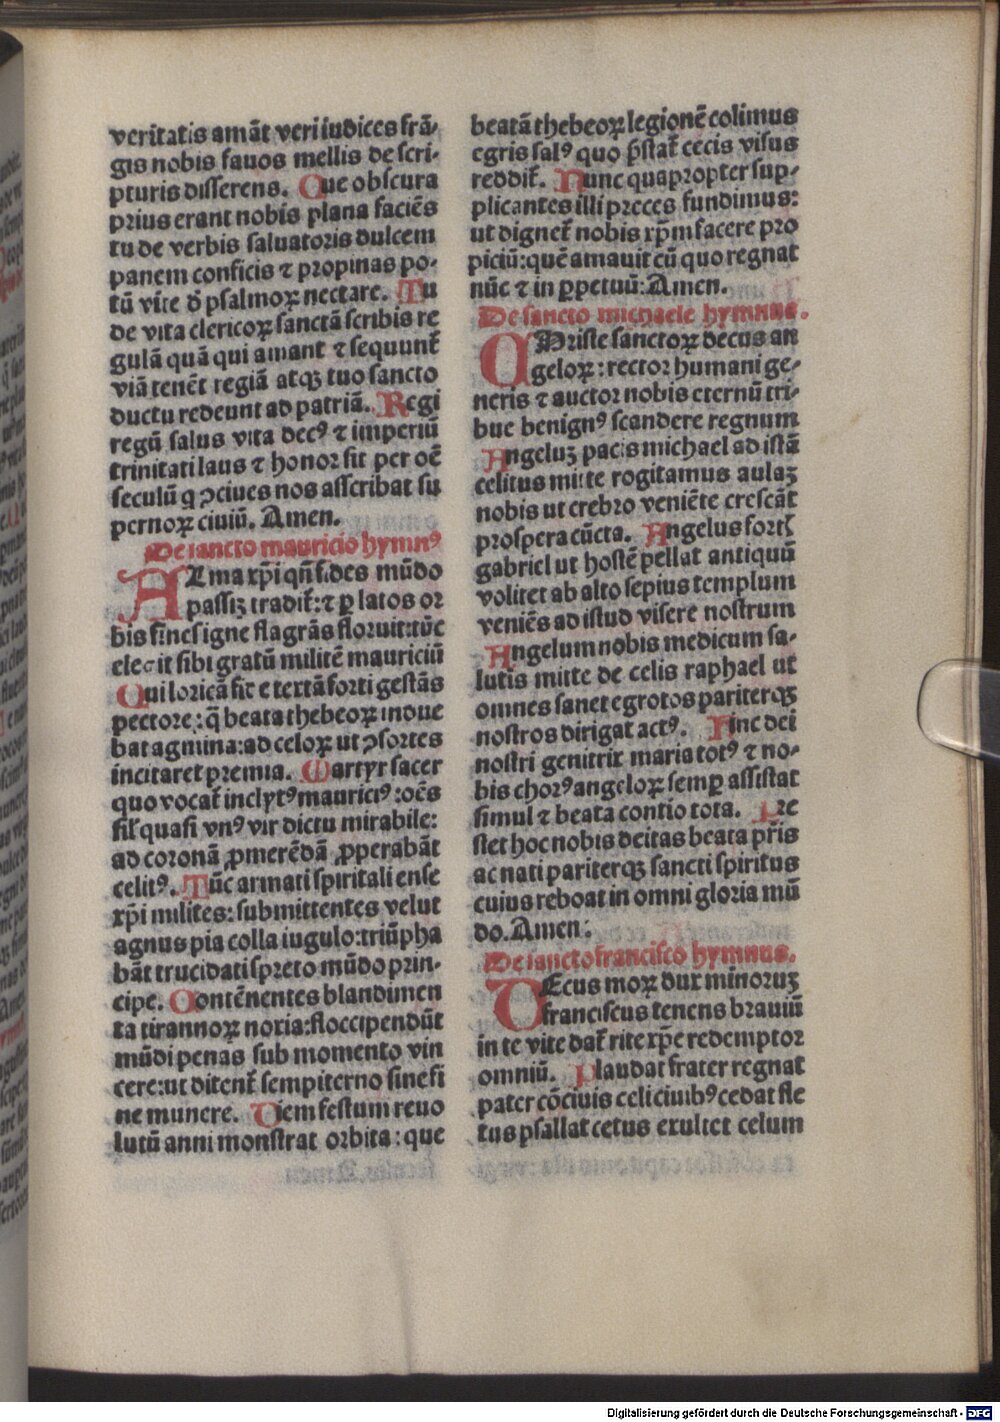 veritatis amāt veri iudices frā⸗
gis nobis fauos mellis de scri⸗
pturis disserens. Que obscura
prius erant nobis plana faciēs
tu de verbis saluatoris dulcem
panem conficis ⁊ propinas po⸗
tū vite d̄ psalmoꝝ nectare. Tu
de vita clericoꝝ sanctā scribis re
gulā quā qui amant ⁊ sequunt̄
viā tenēt regiā atqꝫ tuo sancto
ductu redeunt ad patriā. Regi
regū salus vita decꝰ ⁊ imperiū
trinitati laus ⁊ honor sit per oē
seculū q ꝯciues nos asscribat su
pernoꝝ ciuiū. Amen.
De sancto mauricio hymnꝰ
ALma xp̄i qn̄ fides mūdo
passiꝫ tradit̄:⁊ ꝑ latos or
bis fines igne flagrās floruit:tūc
elegit sibi gratū militē mauriciū
Qui loricā fit e textā forti gestās
pectore:q̄ beata thebeoꝝ indue
bat agmina:ad celoꝝ ut ꝯsortes
incitaret premia. Martyr sacer
quo vocat̄ inclytꝰ mauriciꝰ:oēs
fit̄ quasi vnꝰ vir dictu mirabile:
ad coronā ꝓmerēdā ꝓperabāt
celitꝰ. Tūc armati spiritali ense
xp̄i milites:submittentes velut
agnus pia colla iugulo:triūpha
bāt trucidati spreto mūdo prin⸗
cipe. Contēnentes blandimen
ta tirannoꝝ noxia:floccipendūt
mūdi penas sub momento vin
cere:ut ditent̄ sempiterno sine fi
ne munere. Diem festum reuo
lutū anni monstrat orbita:que
beatā thebeoꝝ legionē colimus
egris salꝰ quo p̄stat̄ cecis visus
reddit̄. Nunc quapropter sup⸗
plicantes illi preces fundimus:
ut dignet̄ nobis xp̄m facere pro
piciū:quē amauit cū quo regnat
nūc ⁊ in ꝑpetuū:Amen.
De sancto michaele hymnus.
CHriste sanctoꝝ decus an
geloꝝ:rector humani ge⸗
neris ⁊ auctor nobis eternū tri⸗
bue benignꝰ scandere regnum
Angeluꝫ pacis michael ad istā
celitus mitte rogitamus aulaꝫ
nobis ut crebro veniēte crescāt
prospera cūcta. Angelus fortꝭ
gabriel ut hostē pellat antiquū
volitet ab alto sepius templum
veniēs ad istud visere nostrum
Angelum nobis medicum sa⸗
lutis mitte de celis raphael ut
omnes sanet egrotos pariterqꝫ
nostros dirigat actꝰ. Hinc dei
nostri genitrix maria totꝰ ⁊ no⸗
bis chorꝰ angeloꝝ semꝑ assistat
simul ⁊ beata contio tota. Pre
stet hoc nobis deitas beata pr̄is
ac nati pariterqꝫ sancti spiritus
cuius reboat in omni gloria mū
do. Amen:
De sancto francisco hymnus.
DEcus moꝝ dux minoruꝫ
franciscus tenens brauiū
in te vite dat̄ rite xp̄e redemptor
omniū. Plaudat frater regnat
pater cōciuis celi ciuibꝰ cedat fle
tus psallat cetus exultet celum